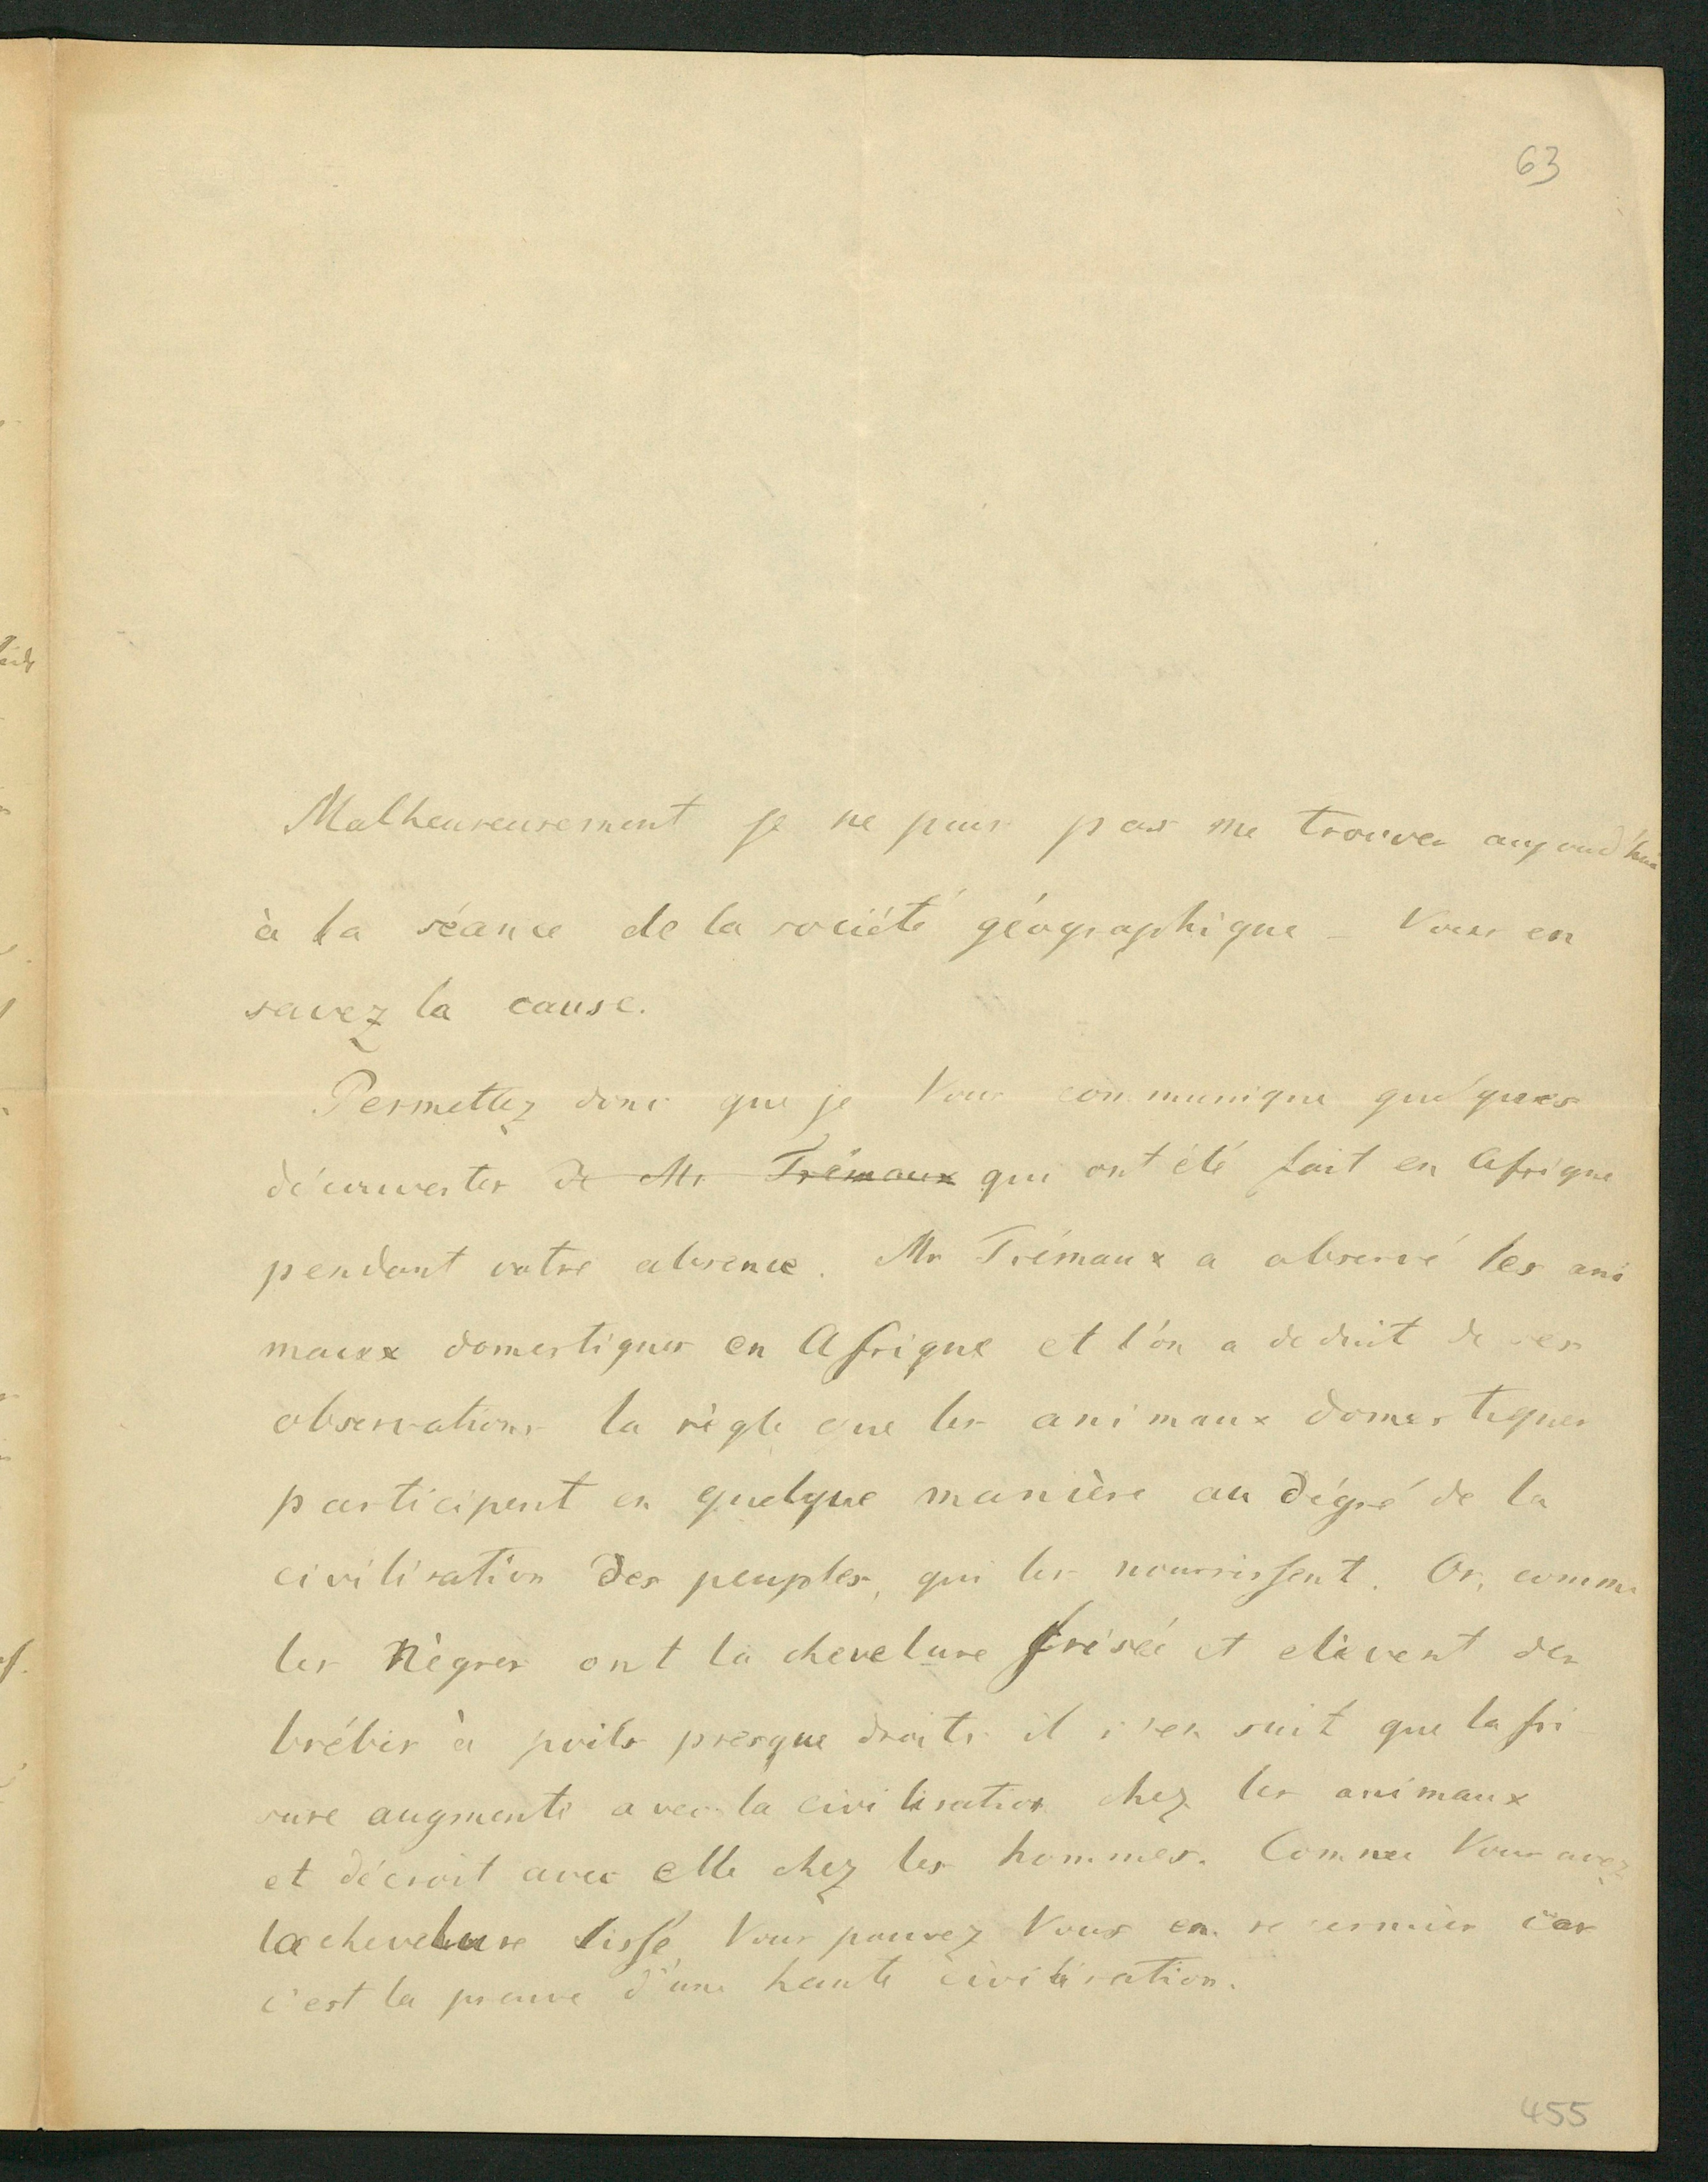 63
Malheureusement je ne puis pas me trouver aujourd'hui
à la séance de la société géographique – Vous en
savez la cause.
Permettez donc que je Vous communique quelques
découvertes de Mr Trémaux qui ont été fait en Afrique
pendant votre absence. Mr Trémaux a observé les ani
maux domestiques en Afrique et l'on a deduit de ses
observations la règle que les animaux domestiques
participent en quelque manière au dégré de la
civilisation des peuples, qui les nourrissent. Or, comme
les Nègres ont la chevelure frisée et elèvent des
brébis à poils presque droits il s'en suit que la fri
sure augmente avec la civilisation chez les animaux
et décroit avec elle chez les hommes. Comme Vous avez
la chevelure lisse, Vous pouvez Vous en car
c'est la preuve d'une haute civilisation.
455